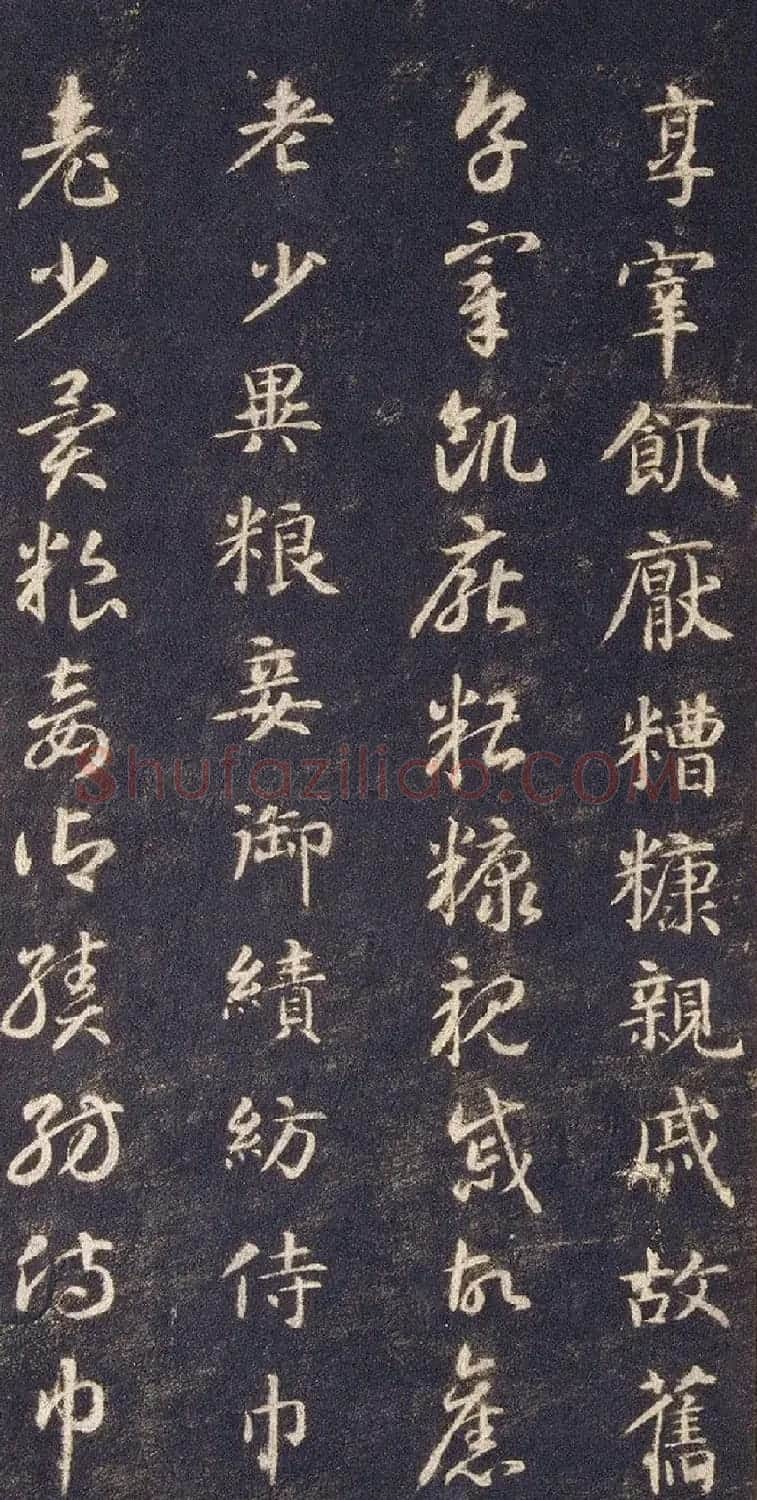 享宰飢厭糟糠親戚故舊
享宰飢厭糟糠親戚故舊
老少異粮妾御績紡侍巾
老少異粮妾御績紡侍巾
Shufaziliao.COM